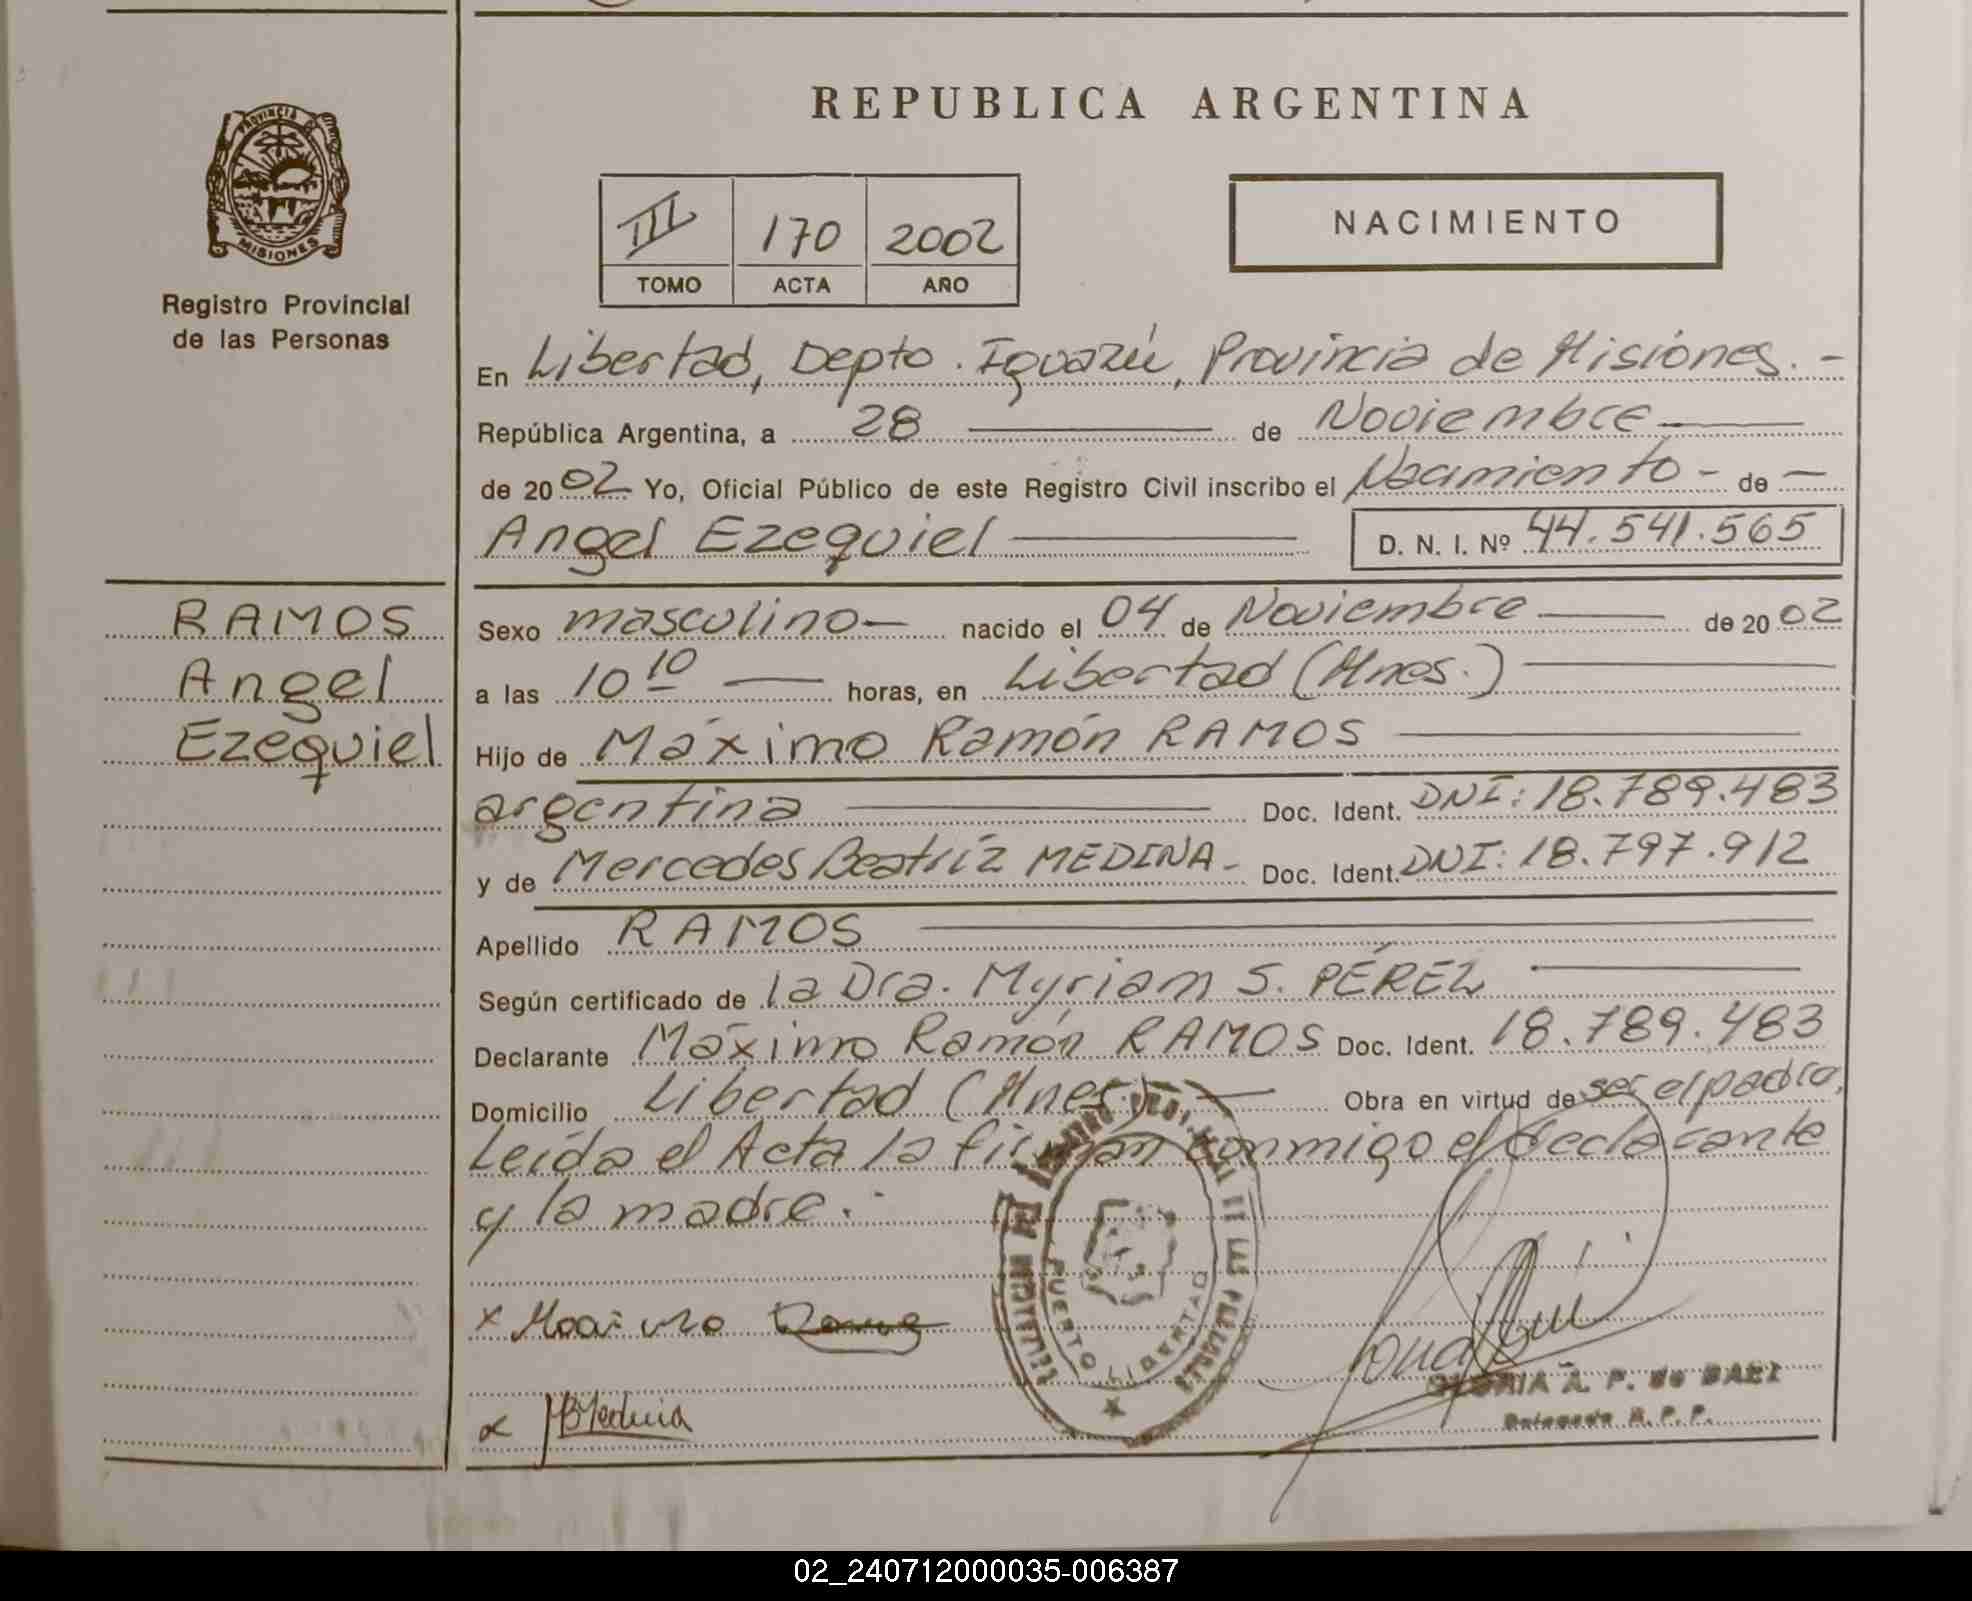 REPUBLICA ARGENTINA
PROVINCIA DE
MISIONES
Registro Provincial
de las Personas
III 170 2002
TOMO ACTA AÑO
NACIMIENTO
En Libertad, Depto. Iguazú, Provincia de Misiones. -
República Argentina, a 28 de Noviembre
de 2002 Yo, Oficial Público de este Registro Civil inscribo el Nacimiento - de -
Angel Ezequiel D. N. I. Nº 44.541.565
RAMOS
Angel
Ezequiel
Sexo masculino nacido el 04 de Noviembre de 2002
a las 10 10 horas, en Libertad (Mnes.)
Hijo de Máximo Ramón RAMOS
argentina Doc. Ident. DNI: 18.789.483
y de Mercedes Beatríz MEDINA - Doc. Ident. DNI: 18.797.912
Apellido RAMOS
Según certificado de la Dra. Myriam S. PÉREZ
Declarante Máximo Ramón RAMOS Doc. Ident. 18.789.483
Domicilio Libertad (Mnes.) - Obra en virtud de ser el padre,
Leída el Acta la firman conmigo el declarante
y la madre.
PUERTO LIBERTAD
x Maximo Ramos
x MBMedina
GLORIA A. P. de BAEZ
Delegada R. P. P.
02_240712000035-006387